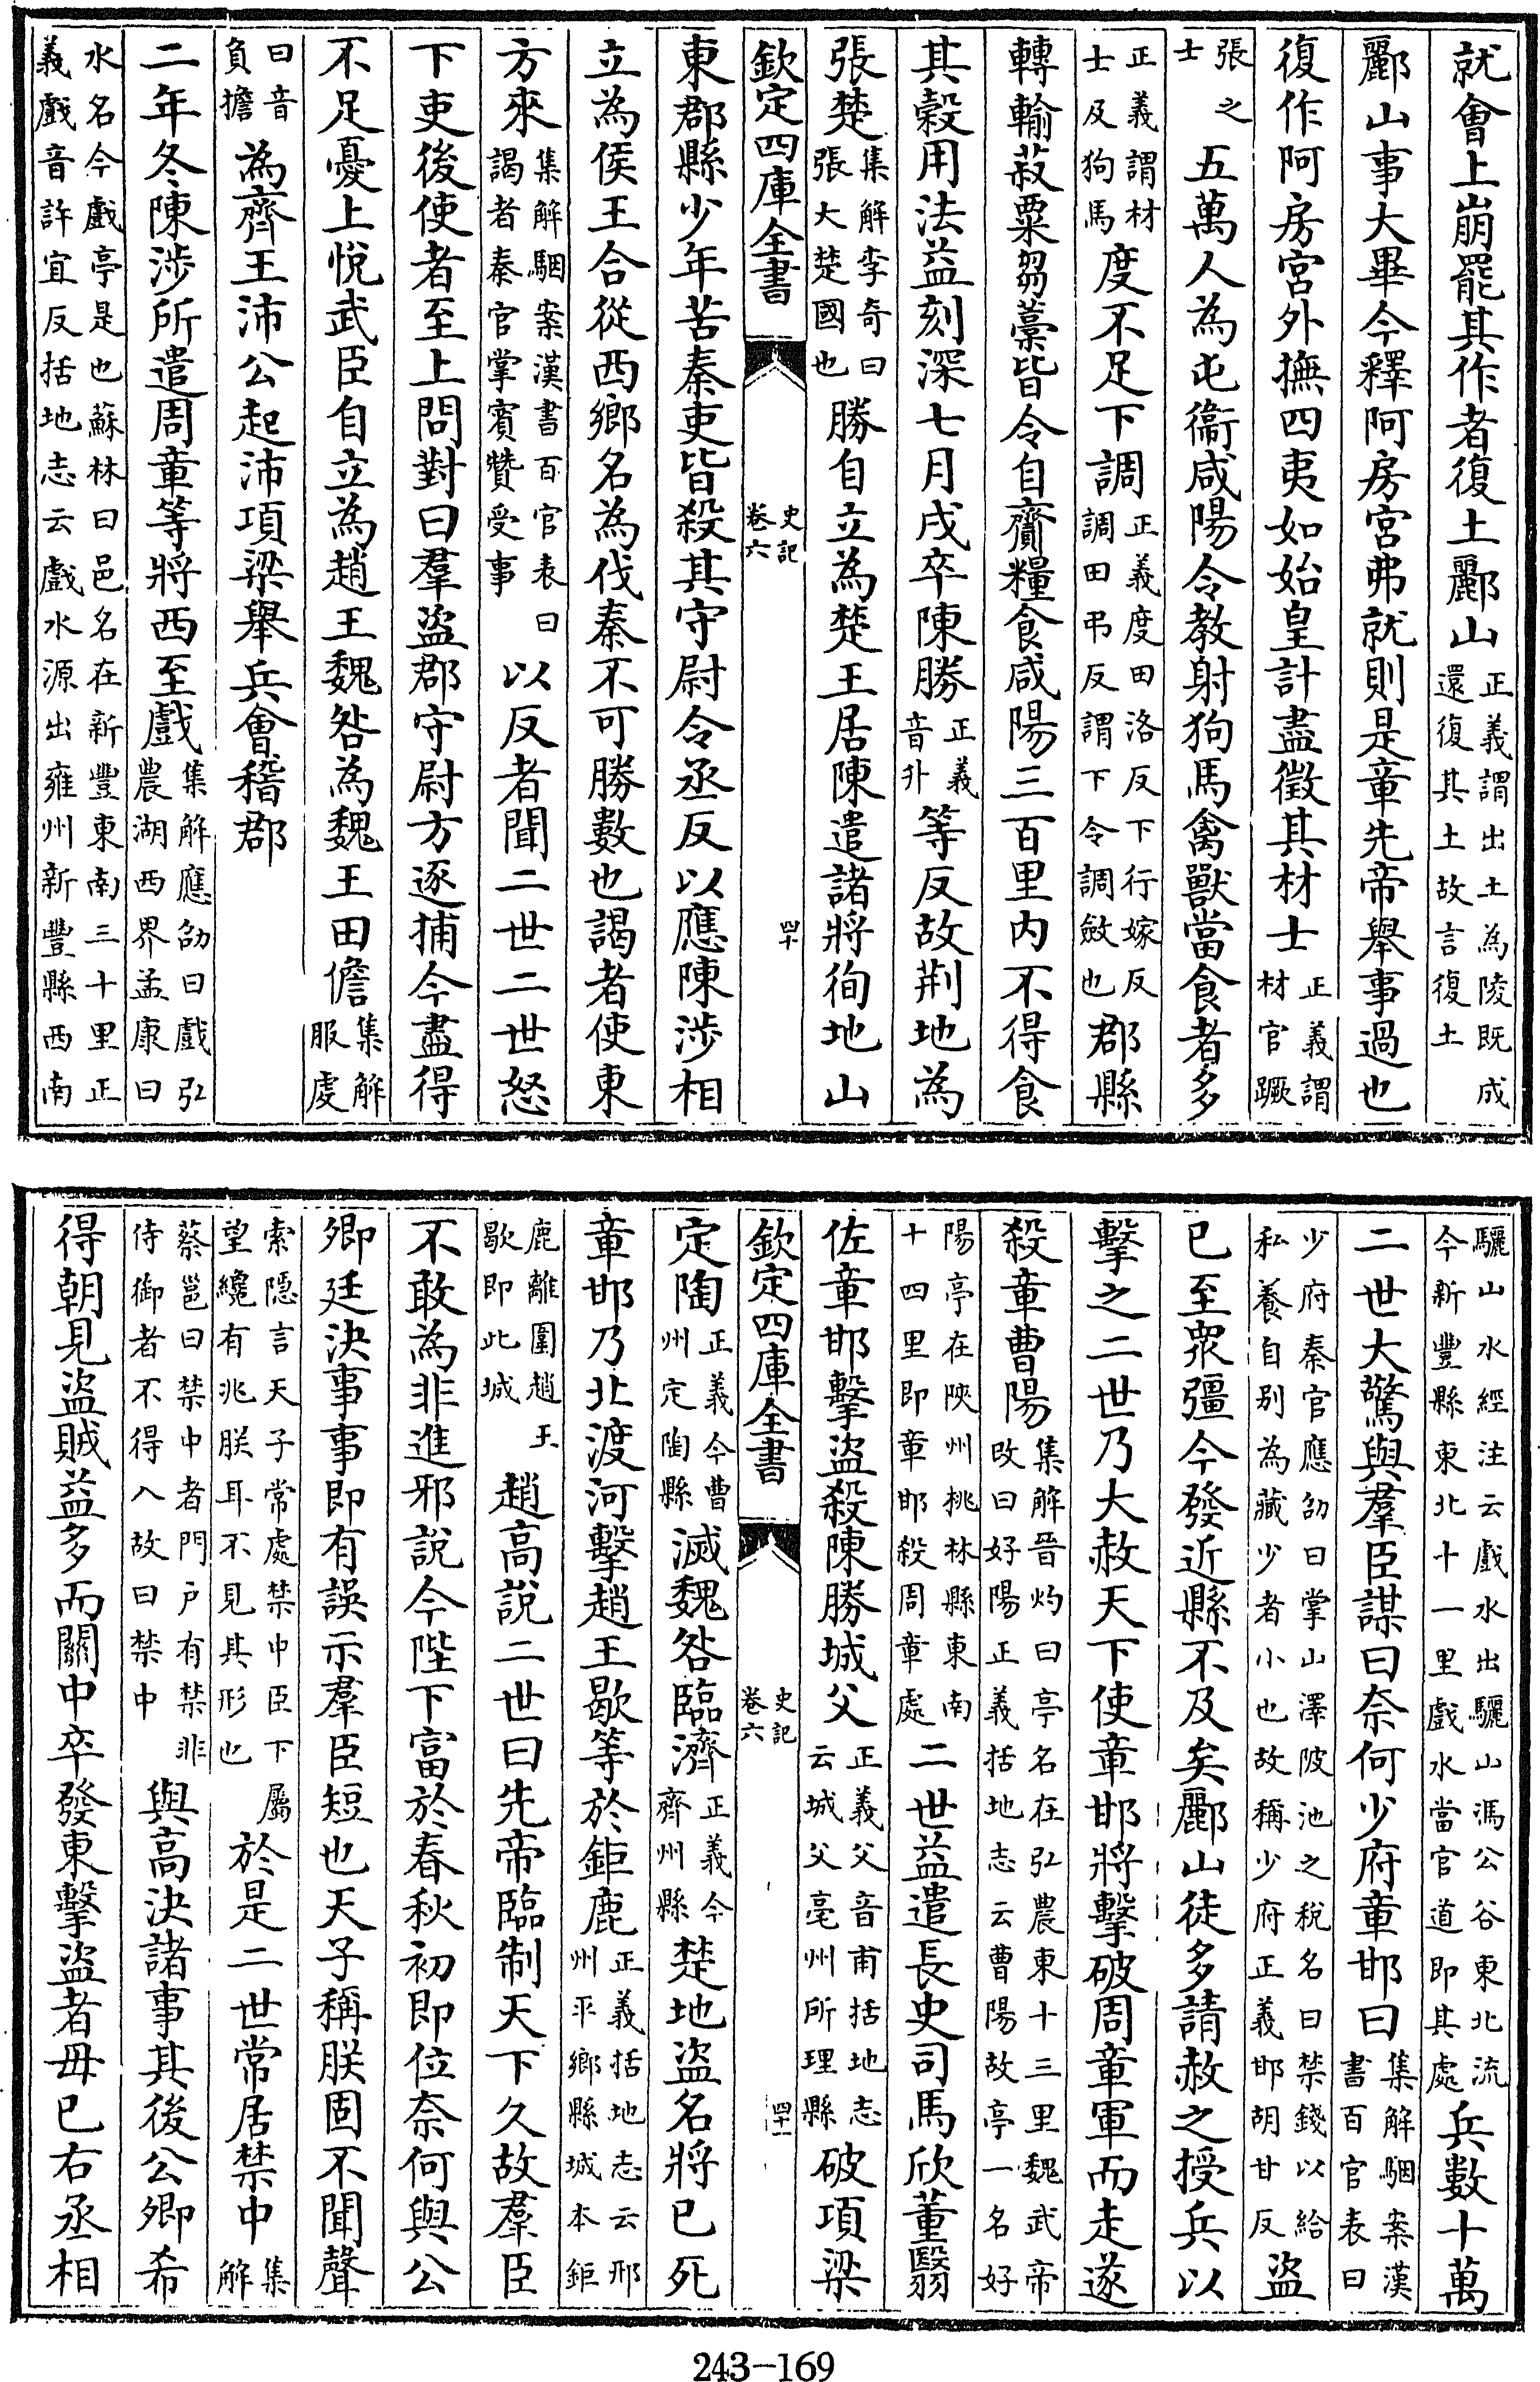 就會上崩罷其作者復土酈山正義謂出土為陵既成還復其土故言復土
酈山事大畢今釋阿房宮弗就則是章先帝舉事過也
復作阿房宮外撫四夷如始皇計盡徵其材士正義謂材官蹶
張之士五萬人為屯衞咸陽令教射狗馬禽獸當食者多
正義謂材士及狗馬度不足下調正義度田洛反下行嫁反調田弔反謂下令調斂也郡縣
轉輸菽粟芻藁皆令自齎糧食咸陽三百里內不得食
其穀用法益刻深七月戍卒陳勝正義音升等反故荆地為
張楚集解李奇曰張大楚國也勝自立為楚王居陳遣諸將徇地山
欽定四庫全書 史記卷六 四十
東郡縣少年苦秦吏皆殺其守尉令丞反以應陳涉相
立為侯王合從西鄉名為伐秦不可勝數也謁者使東
方來集解駰案漢書百官表曰謁者秦官掌賓贊受事以反者聞二世二世怒
下吏後使者至上問對曰羣盗郡守尉方逐捕今盡得
不足憂上悅武臣自立為趙王魏咎為魏王田儋集解服虔
曰音負擔為齊王沛公起沛項梁舉兵會稽郡
二年冬陳涉所遣周章等將西至戲集解應劭曰戲弘農湖西界孟康曰
水名今戲亭是也蘇林曰邑名在新豐東南三十里正義戲音許宜反括地志云戲水源出雍州新豐縣西南
驪山水經注云戲水出驪山馮公谷東北流今新豐縣東北十一里戲水當官道即其處兵數十萬
二世大驚與羣臣謀曰奈何少府章邯曰集解駰案漢書百官表曰
少府秦官應劭曰掌山澤陂池之稅名曰禁錢以給私養自别為藏少者小也故稱少府正義邯胡甘反盗
已至衆彊今發近縣不及矣酈山徒多請赦之授兵以
擊之二世乃大赦天下使章邯將擊破周章軍而走遂
殺章曹陽集解晉灼曰亭名在弘農東十三里魏武帝改曰好陽正義括地志云曹陽故亭一名好
陽亭在陝州桃林縣東南十四里即章邯殺周章處二世益遣長史司馬欣董翳
佐章邯擊盗殺陳勝城父正義父音甫括地志云城父亳州所理縣破項梁
欽定四庫全書 史記卷六 四十一
定陶正義今曹州定陶縣滅魏咎臨濟正義今齊州縣楚地盗名將已死
章邯乃北渡河擊趙王歇等於鉅鹿正義括地志云邢州平鄉縣城本鉅
鹿離圍趙王歇即此城趙高說二世曰先帝臨制天下久故羣臣
不敢為非進邪說今陛下富於春秋初即位奈何與公
卿廷決事事即有誤示羣臣短也天子稱朕固不聞聲
索隱言天子常處禁中臣下屬望纔有兆朕耳不見其形也於是二世常居禁中集解
蔡邕曰禁中者門户有禁非侍御者不得入故曰禁中與高決諸事其後公卿希
得朝見盗賊益多而關中卒發東擊盗者毋已右丞相
243-169